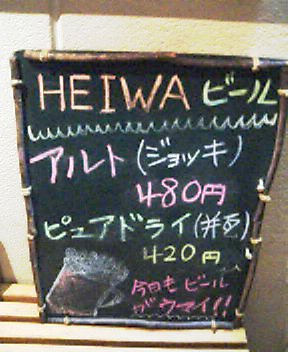 HEIWA ビール
アルト(ジョッキ)
480円
ピュアドライ(丼瓦)
420円
今日もビール
がウマイ!!